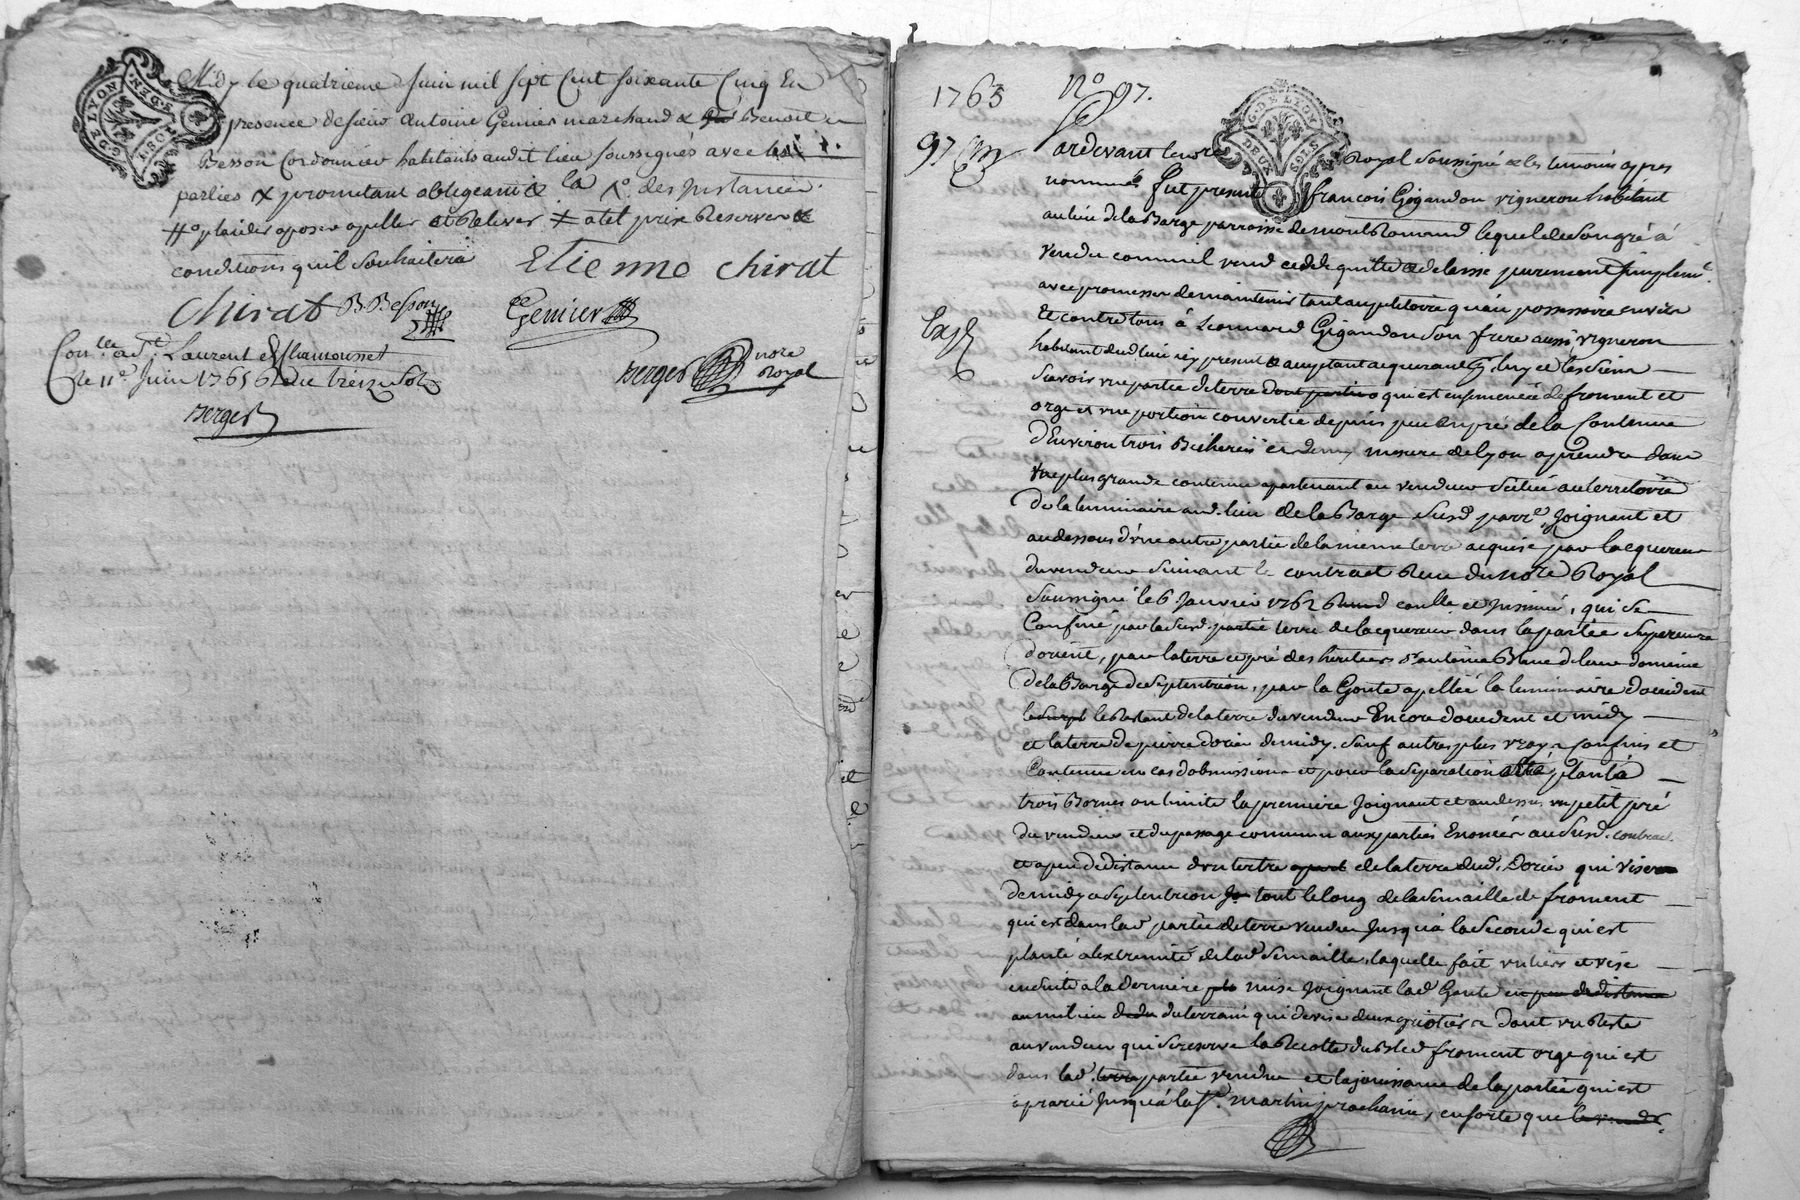 G. DE LYON
DEUX SOLS
Midy le quatrieme Juin mil sept Cent soixante Cinq En
presence de sieur Antoine Genier marchand & Benoit
Besson Cordonnier habitants audit lieu soussignés avec les
parties & promettant obligeant & la des Instances
plaider oposer apeller et relever ≠ a tel prix reserver &
conditions quil souhaitera
Etienne chirat
chirat B Besson
Genier
Con.lle a d.t Laurent de Chamousset
le 11e Juin 1765 Recu treize sols
Berger
Berger nore Royal
1765 No 97.
G. DE LYON
DEUX SOLS
97
Pardevant le nore Royal soussigné & les temoins apres
nommés fut present françois Gigandon vigneron habitant
au lieu de la Barge parroisse de montRomand lequel de son gré á
vendu comme il vend cede quitte & delaisse purement & simplem.t
avec promesse de maintenir tant au petitoire qu'au possessoire envers
Et contre tous á Leonnard Gigandon son frere aussi vigneron
habitant dud. lieu icy present & aceptant acquerant p.r luy et les siens
Exp.
Savoir une partie de terre dont partie qui est ensemencée de froment et
orge et une portion convertie depuis peu en pré de la Contenue
d'Environ trois Bicherées et demy mesure de Lyon a prendre dans
une plus grande contenue apartenant au vendeur située au territoire
de la luminaire aud. lieu de la Barge susd. parr.e Joignant et
au dessous d'une autre partie de la meme terre acquise par lacquereur
du vendeur suivant le contract Recu du nore Royal
soussigné le 6 Janvier 1762 con.lle et Insinué, qui se
Confine par la susd. partie terre de lacquereur dans la partie superieure
dorient, par la terre et pré des heritiers s.r antoine de leur domaine
de la Barge de septentrion, par la Goute apellée la luminaire doccident
le restant de la terre du vendeur Encore doccident et midy
et la terre de pierre dorier de midy. Sauf autres plus vrays confins et
Contenue en cas d'obmission et pour la separation planté
trois Bornes ou limite la premiere Joignant et au dessus un petit pré
du vendeur et du passage commun aux parties Enoncée au susd. contrac
et a peu de distance d'un tertre de la terre dud. Dorier qui visera
de midy a septentrion tout le long de la semaille de froment
qui est dans lad. partie de terre vendue Jusqu'á la seconde qui est
planté a l'extremité de lad. semaille, laquelle fait et vise
ensuite a la derniere mise Joignant lad. Goute en peu de distance
au milieu du terrain qui devise deux dont un Reste
au vendeur qui se reserve la Recolte du Bled froment orge qui est
dans lad. terre partie vendue et la jouissance de la partie qui est
a prarie Jusqu'á la s.t martin prochaine, en sorte que